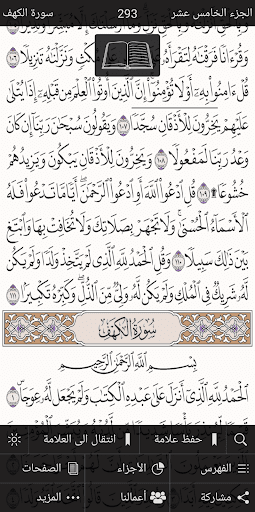 الجزء الخامس عشر 293 سورة الكهف
وَقُرْءَانًا فَرَقْنَٰهُ لِتَقْرَأَهُۥ مُكْثٍ وَنَزَّلْنَٰهُ تَنزِيلًا ١٠٦
قُلْ ءَامِنُوا۟ بِهِۦٓ أَوْ لَا تُؤْمِنُوٓا۟ إِنَّ ٱلَّذِينَ أُوتُوا۟ ٱلْعِلْمَ مِن قَبْلِهِۦٓ إِذَا يُتْلَىٰ
عَلَيْهِمْ يَخِرُّونَ لِلْأَذْقَانِ سُجَّدًا ١٠٧ وَيَقُولُونَ سُبْحَٰنَ رَبِّنَآ إِن كَانَ
وَعْدُ رَبِّنَا لَمَفْعُولًا ١٠٨ وَيَخِرُّونَ لِلْأَذْقَانِ يَبْكُونَ وَيَزِيدُهُمْ
خُشُوعًا ١٠٩ قُلِ ٱدْعُوا۟ ٱللَّهَ أَوِ ٱدْعُوا۟ ٱلرَّحْمَٰنَ أَيًّا مَّا تَدْعُوا۟ فَلَهُ
ٱلْأَسْمَآءُ ٱلْحُسْنَىٰ وَلَا تَجْهَرْ بِصَلَاتِكَ وَلَا تُخَافِتْ بِهَا وَٱبْتَغِ
بَيْنَ ذَٰلِكَ سَبِيلًا ١١٠ وَقُلِ ٱلْحَمْدُ لِلَّهِ ٱلَّذِى لَمْ يَتَّخِذْ وَلَدًا وَلَمْ يَكُن
لَّهُۥ شَرِيكٌ فِى ٱلْمُلْكِ وَلَمْ يَكُن لَّهُۥ وَلِىٌّ مِّنَ ٱلذُّلِّ وَكَبِّرْهُ تَكْبِيرًۢا ١١١
سُورَةُ الكَهْفِ
بِسْمِ ٱللَّهِ ٱلرَّحْمَٰنِ ٱلرَّحِيمِ
ٱلْحَمْدُ لِلَّهِ ٱلَّذِىٓ أَنزَلَ عَلَىٰ عَبْدِهِ ٱلْكِتَٰبَ وَلَمْ يَجْعَل لَّهُۥ عِوَجَا ١
حفظ علامة انتقال الى العلامة
الفهرس الأجزاء الصفحات
مشاركة أعمالنا المزيد